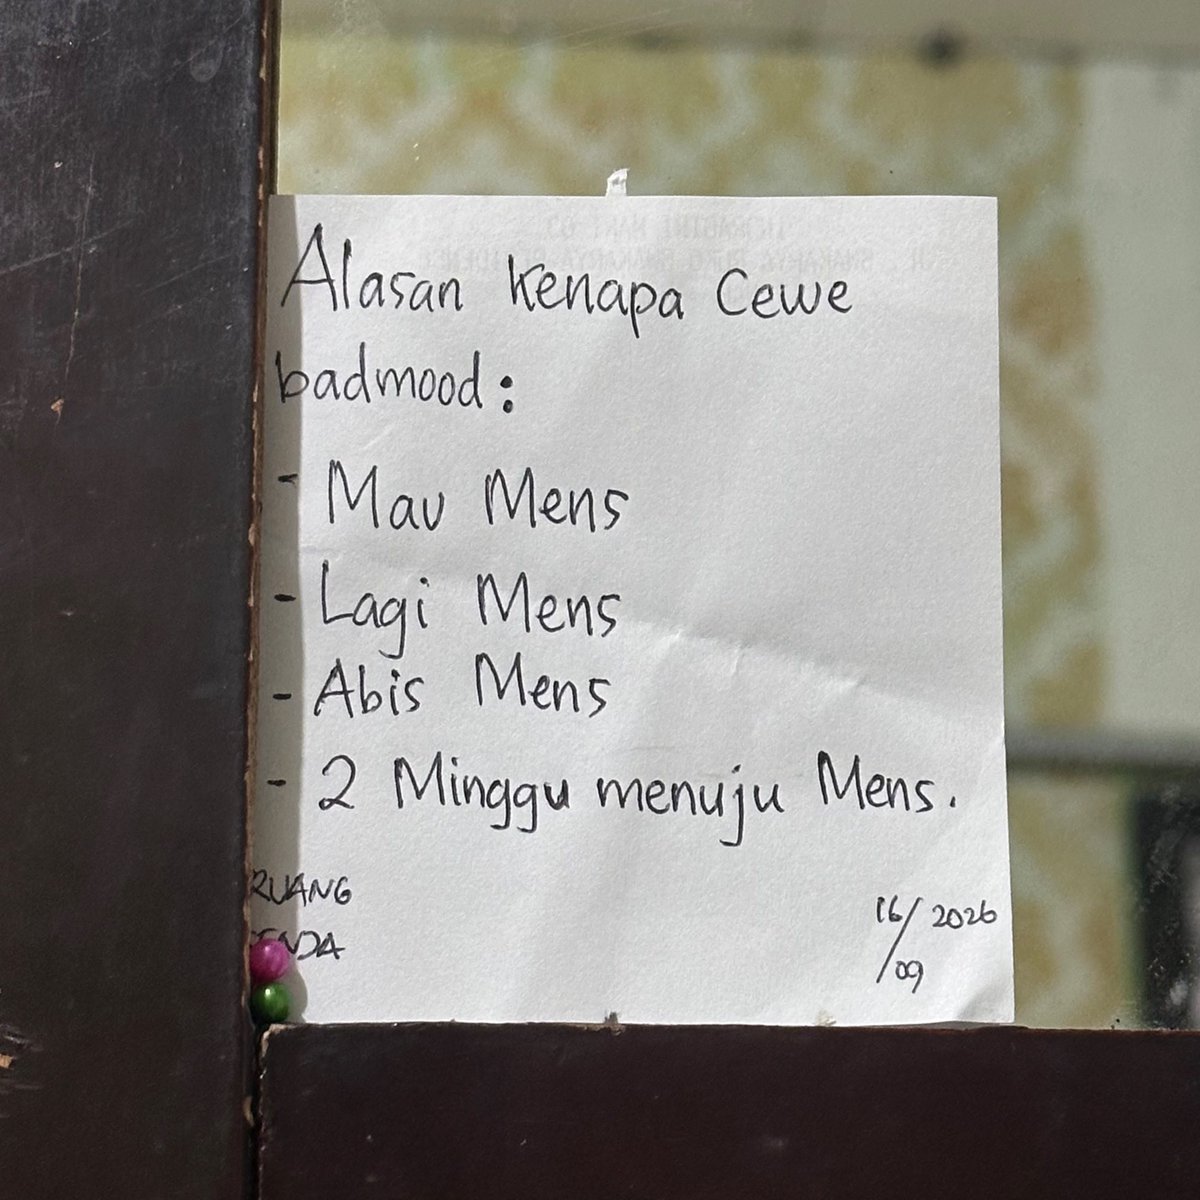 Alasan kenapa cewe
badmood:
- Mau Mens
- Lagi Mens
- Abis Mens
- 2 Minggu menuju Mens.
RUANG
16/2026
/09